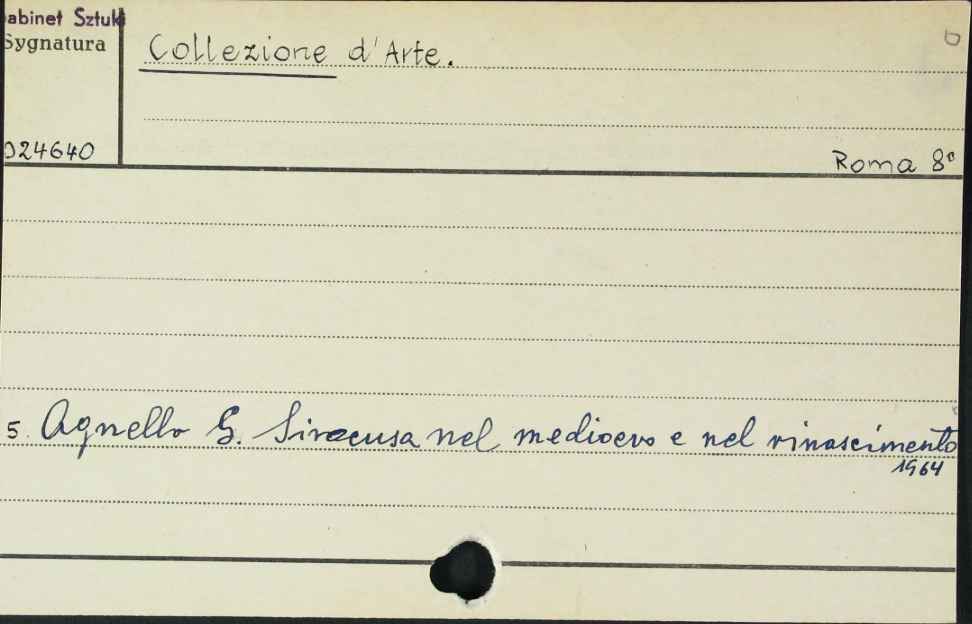 abinet Sztuki
Sygnatura
Collezione d'Arte.
024640
Roma 8°
5. Agnello G. Siracusa nel medioevo e nel rinascimento
1964